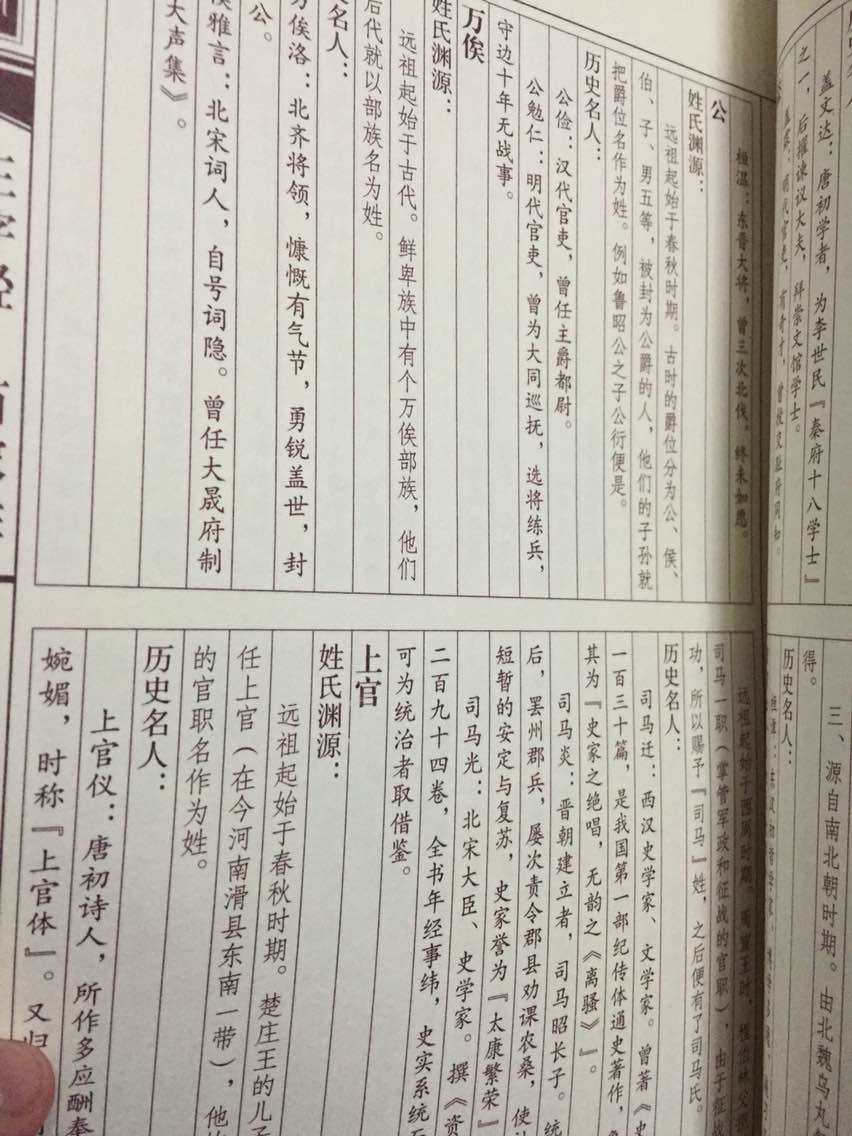 盖文达：唐初学者，为李世民『秦府十八学士』
之一，后擢谏议大夫，拜崇文馆学士。
桓温：东晋大将，曾三次北伐，终未如愿。
公
姓氏渊源：
远祖起始于春秋时期。古时的爵位分为公、侯、
伯、子、男五等，被封为公爵的人，他们的子孙就
把爵位名作为姓。例如鲁昭公之子公衍便是。
历史名人：
公俭：汉代官吏，曾任主爵都尉。
公勉仁：明代官吏，曾为大同巡抚，选将练兵，
守边十年无战事。
万俟
姓氏渊源：
远祖起始于古代。鲜卑族中有个万俟部族，他们
后代就以部族名为姓。
名人：
万俟洛：北齐将领，慷慨有气节，勇锐盖世，封
公。
俟雅言：北宋词人，自号词隐。曾任大晟府制
大声集》。
三、源自南北朝时期。由北魏乌丸
得。
历史名人：
远祖起始于西周时期。周宣王时，程伯休父
司马一职（掌管军政和征战的官职），由于征战
功，所以赐予『司马』姓，之后便有了司马氏。
历史名人：
司马迁：西汉史学家、文学家。曾著《史
一百三十篇，是我国第一部纪传体通史著作，
其为『史家之绝唱，无韵之《离骚》』。
司马炎：晋朝建立者，司马昭长子。统
后，罢州郡兵，屡次责令郡县劝课农桑，使
短暂的安定与复苏，史家誉为『太康繁荣』
司马光：北宋大臣、史学家。撰《资
二百九十四卷，全书年经事纬，史实系统
可为统治者取借鉴。
上官
姓氏渊源：
远祖起始于春秋时期。楚庄王的儿子
任上官（在今河南滑县东南一带），他
的官职名作为姓。
历史名人：
上官仪：唐初诗人，所作多应酬奉
婉媚，时称『上官体』。又归